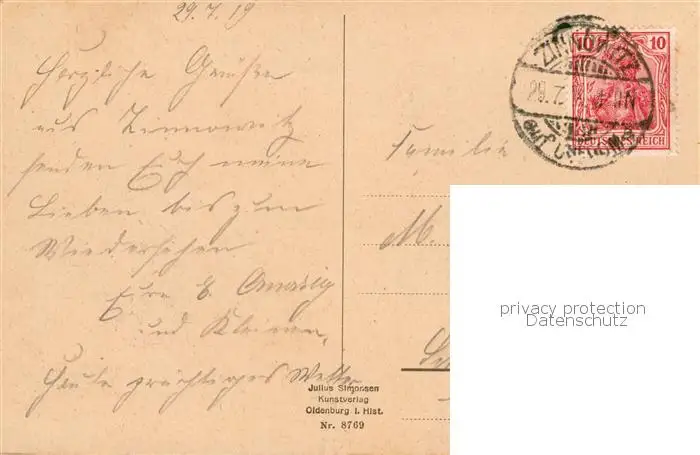 29.7.19
Herzliche Grüße
aus Zinnowitz
senden Euch meine
Lieben bis zum
Wiedersehen
Eure E.
und Kleinen.
Heute prächtiges Wetter
Familie
M.
ZINNOWITZ
29.7.
10
10
DEUTSCHES REICH
Julius Simonsen
Kunstverlag
Oldenburg i. Hlst.
Nr. 8769
privacy protection
Datenschutz